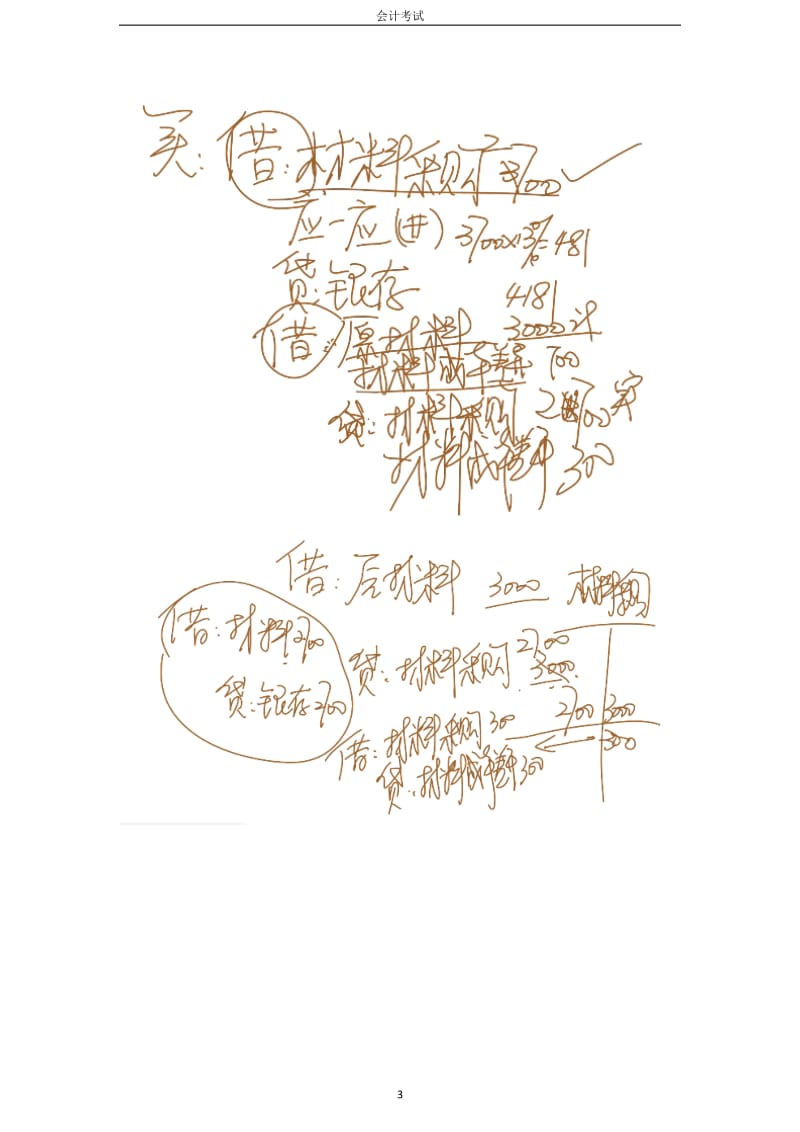 会计考试
买: 借: 材料采购 3700 ✓
应一应(进) 3700×13%=481
贷: 银存 4181
借: 原材料 3000计
材料成本差异 700
贷: 材料采购 2700实
材料成本差异 300
借: 原材料 3000 材料采购
借: 材料 2700
贷: 材料采购 2700
3000
贷: 银存 2700
2700 3000
借: 材料采购 300
300
贷: 材料成本差异 300
3